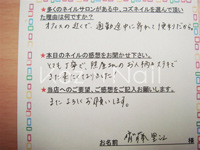 ★多くのネイルサロンがある中、コズネイルを選んで頂いた
理由は何ですか?
オフィスの近くで、通勤途中に寄れて便利だから。
★本日のネイルの感想をお聞かせ下さい。
とても丁寧で、
また来たくなりました
★当店へのご要望、ご感想をご記入お願いします。
またよろしくお願いします。
Nail